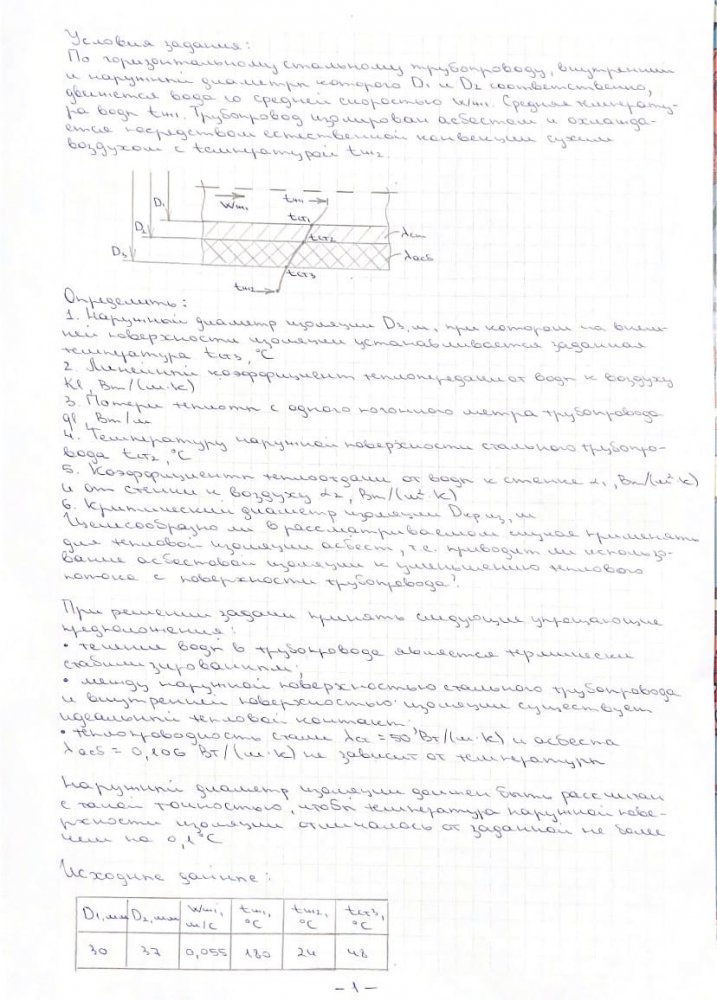 Условия задания:
По горизонтальному стальному трубопроводу, внутренний
и наружный диаметры которого D₁ и D₂ соответственно,
движется вода со средней скоростью wж₁. Средняя температу-
ра воды tж₁. Трубопровод изолирован асбестом и охлажда-
ется посредством естественной конвекции сухим
воздухом с температурой tж₂.
D₁ wж₁ tж₁
D₂ tст₁ λст
tст₂
D₃ λасб
tст₃
tж₂
Определить:
1. Наружный диаметр изоляции D₃, м, при котором на внеш-
ней поверхности изоляции устанавливается заданная
температура tст₃, °С
2. Линейный коэффициент теплопередачи от воды к воздуху
Kl, Вт/(м·К)
3. Потери теплоты с одного погонного метра трубопровода
ql, Вт/м
4. Температуру наружной поверхности стального трубопро-
вода tст₂, °С
5. Коэффициенты теплоотдачи от воды к стенке α₁, Вт/(м²·К)
и от стенки к воздуху α₂, Вт/(м²·К)
6. Критический диаметр изоляции Dкр.из, м
Целесообразно ли в рассматриваемом случае применять
для тепловой изоляции асбест, т.е. приводит ли использо-
вание асбестовой изоляции к уменьшению теплового
потока с поверхности трубопровода?
При решении задачи принять следующие упрощающие
предположения:
• течение воды в трубопроводе является термически
стабилизированным;
• между наружной поверхностью стального трубопровода
и внутренней поверхностью изоляции существует
идеальный тепловой контакт
• теплопроводность стали λст = 50 Вт/(м·К) и асбеста
λасб = 0,106 Вт/(м·К) не зависит от температуры
Наружный диаметр изоляции должен быть рассчитан
с такой точностью, чтобы температура наружной пове-
рхности изоляции отличалось от заданной не более
чем на 0,1°С
Исходные данные:
D₁, мм D₂, мм wж₁, м/с tж₁, °С tж₂, °С tст₃, °С
30 37 0,055 180 24 48
- 1 -